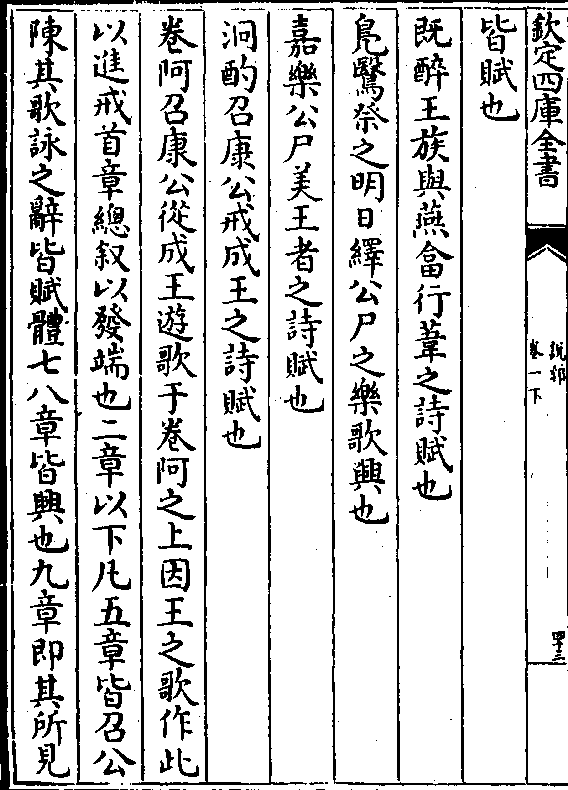 欽定四庫全書
說郛
卷一下
四十三
皆賦也
既醉王族與燕畣行葦之詩賦也
鳬鷖祭之明日繹公尸之樂歌興也
嘉樂公尸美王者之詩賦也
泂酌召康公戒成王之詩賦也
卷阿召康公從成王遊歌于卷阿之上因王之歌作此
以進戒首章總叙以發端也二章以下凡五章皆召公
陳其歌詠之辭皆賦體七八章皆興也九章即其所見